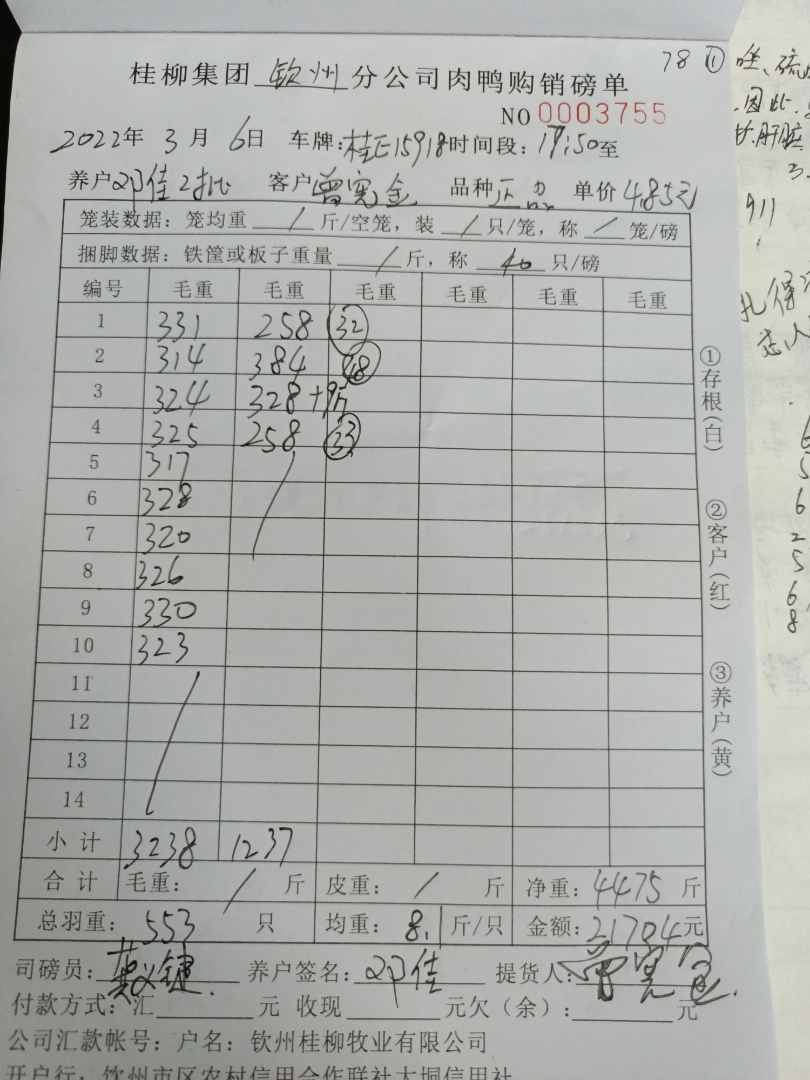 78 ①
桂柳集团 钦州 分公司肉鸭购销磅单
NO 0003755
2022年 3月 6日 车牌:桂E15918 时间段:17:50至
养户 邓佳2批 客户 曾宪金 品种 正品 单价 4.85元
笼装数据:笼均重 / 斤/空笼,装 / 只/笼,称 / 笼/磅
捆脚数据:铁筐或板子重量 / 斤,称 40 只/磅
编号 毛重 毛重 毛重 毛重 毛重 毛重
1 331 258 32
2 314 384 48
3 324 328+9斤
4 325 258 33
5 317
6 328
7 320
8 326
9 330
10 323
11
12
13
14
小计 3238 1237
合计 毛重: / 斤 皮重: / 斤 净重: 4475 斤
总羽重: 553 只 均重: 8.1 斤/只 金额: 21704 元
司磅员: 养户签名: 邓佳 提货人: 曾宪金
付款方式:汇 元 收现 元欠(余): 元
公司汇款帐号:户名:钦州桂柳牧业有限公司
开户行:钦州市区农村信用合作联社大垌信用社
①存根(白)
②客户(红)
③养户(黄)
因此
肝脏
911